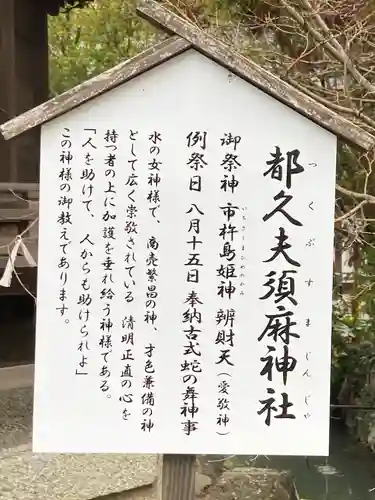 都久夫須麻神社
つくぶすまじんじゃ
御祭神 市杵島姫神 辨財天(愛敬神)
いちきしまひめのかみ
例祭日 八月十五日 奉納古式蛇の舞神事
水の女神様で、商売繁昌の神、才色兼備の神
として広く崇敬されている 清明正直の心を
持つ者の上に加護を垂れ給う神様である。
「人を助けて、人からも助けられよ」
この神様の御教えであります。